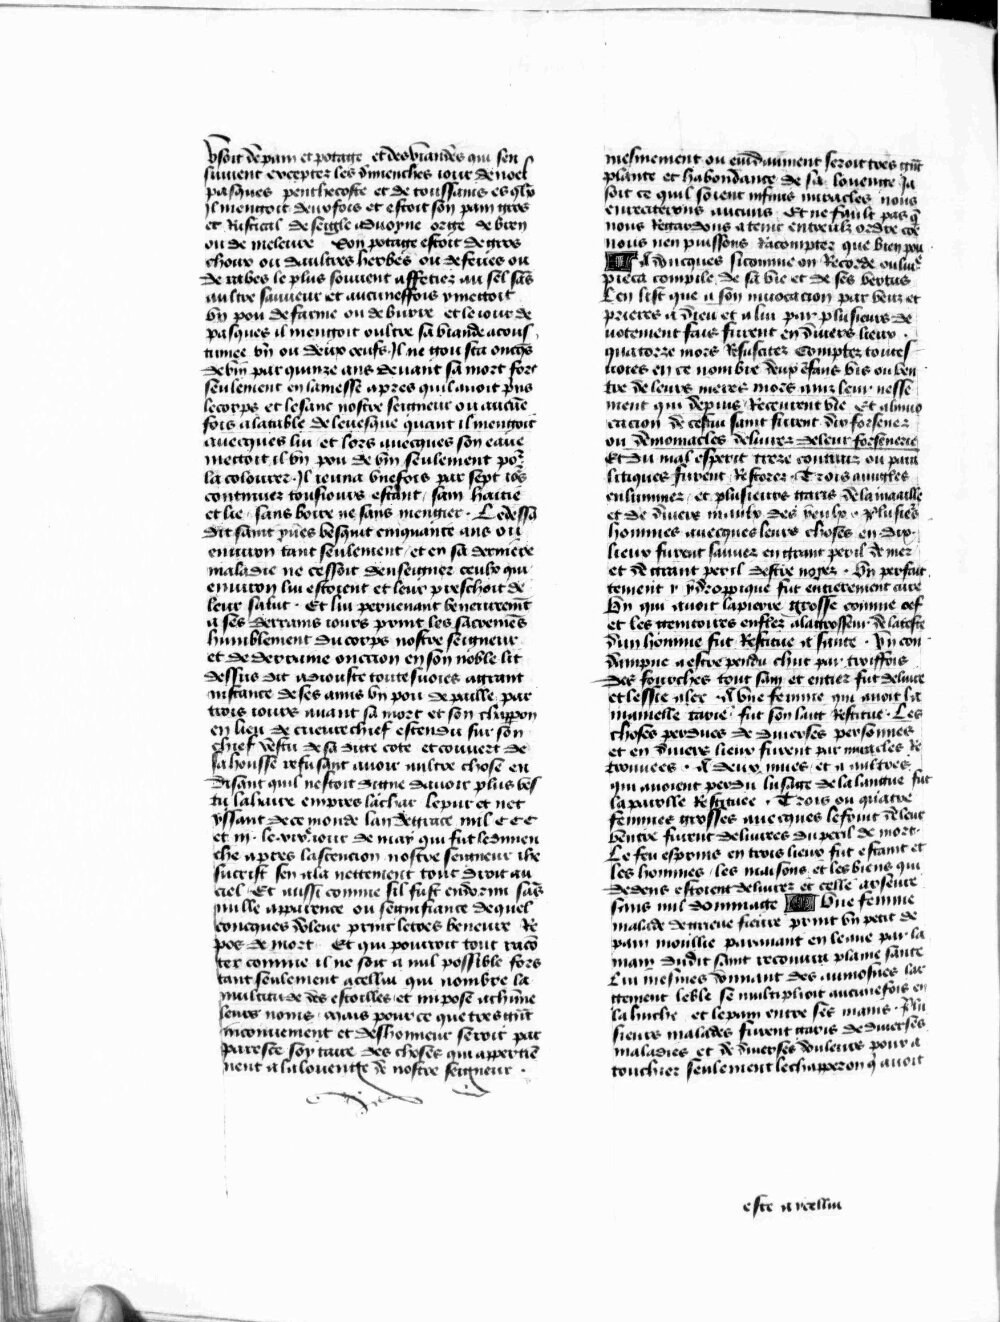 vsoit de pain et potage et des viandes qui sen
suivent excepter les dimenches iour de noel
pasques penthecoste et de toussains es qlx
Il mengoit deux fois et estoit son pain gros
et Rustical de seigle dauoyne orge de bien
ou de meleure Son potage estoit de gros
choux ou daultres herbes ou de feues ou
de rabes le plus souuent affetier au sel sãs
aultre sauueur et aucuneffois y mettoit
vn pou de farine ou de burre et le iour de
pasques il mengoit oultre sa viande acous
tumee vn ou deux oeufs. Il ne gousta onqs
de vin par quinze ans deuant sa mort fors
seulement en la messe apres quil auoit pris
le corps et le sanc nostre seigneur ou aucũe
fois a la table de leuesque quant il mengoit
auecques lui et lors auecques son eaue
mettoit il vn pou de vin seulement por
la colourer. Il ieuna vne fois par sept iors
continuez tousiours estant sain haitie
et lie sans boire ne sans mengier. Ledessus
dit saint yues vesquit cinquante ans ou
enuiron tant seulement et en sa derniere
maladie ne cessoit denseigner ceulx qui
enuiron lui estoient et leur preschoit de
leur salut. Et lui peruenant beneurement
a ses derrains iours print les sacremẽs
humblement du corps nostre seigneur
et de derraine onction en son noble lit
dessus dit adiouste toutesuoies a grant
instance de ses amis vn pou de paille par
trois iours auant sa mort et son chappon
en lieu de cueurechief estendu sur son
chief vestu de sa ditte cote et couuert de
sa housse refusant auoir aultre chose en
disant quil nestoit digne dauoir plus ves
tu la haire empres la char le pur et net
yssant de ce monde lan de grace mil CCC
et iij. le xixe iour de may qui fut le dimen
che apres lascencion nostre seigneur ihe
sucrist sen ala nettement tout droit au
ciel Et aussi comme sil fust endormi sãs
nulle apparence ou segnifiance de quel
concques douleur print le tres beneure Re
pos de mort Et qui pourroit tout racõ
ter comme il ne soit a nul possible fors
tant seulement a cellui qui nombre la
multitude des estoilles et impose a chũne
leurs noms. Mais pour ce que tres grãt
inconuenient et deshonneur seroit par
paresce soy taire des choses qui appertiẽ
nent a la louenge de nostre seigneur.
mesmement ou euidanment seroit tres grãt
plante et habondance de sa louenge Ja
soit ce quil soient infinis miracles nous
en reciterons aucuns Et ne fault pas q
nous Regardons a tenir entreulx ordre cõe
nous nen puissons Racompter que bien pou
Adoncques sicomme on Recorde ou liure
pieca compile de sa vie et de ses vertus
Len list que a son inuocacion par veuz et
prieres a dieu et a lui par plusieurs de
uotement fais furent en diuers lieux.
quatorze mors Resuscitez Comptez toutes
uoies en ce nombre deux ẽfans vis ou ven
tre de leurs meres mors auz leur nesse
ment qui depuis Receurent vie Et a linuo
cacion de cestui saint furent dix forsenez
ou demoniacles deliurez de leur forsenerie
Et du mal esperit treze contraiz ou para
litiques furent Restorez. Trois auugles
enluminez et plusieurs garis de la maaille
et de diuers maulx des yeulx. Plusieurs
hommes auecques leurs choses en dix
lieux furent sauuez en grant peril de mer
et de grant peril destre noyez. Vn perfait
tement ydroppique fut entierement cure
Vn qui auoit la pierre grosse comme oef
et les genitoires enflez a la grosseur de la teste
dun homme fut Restitue a sante. Vn con
dampne a estre pendu chut par troiffois
des fourches tout sain et entier fut deliure
et lessie alez. A vne femme qui auoit la
mamelle tarie fut son lait Restitue. Les
choses perdues de diuerses personnes
et en diuers lieux furent par miracles Re
trouuees. A deux mues et a aultres
qui auoient perdu lusage de la langue fut
la parolle Restituee. Trois ou quatre
femmes grosses auecques le fruit de leur
ventre furent deliures du peril de mort.
Le feu esprins en trois lieux fut estaint et
les hommes les maisons et les biens qui
dedens estoient deliurez et celle arseure
sans nul dommage Vne femme
malade de grieue fieure print vn petit de
pain moillie parauant en leaue par la
main dudit saint recouura plaine sante
Lui mesmes donnant des aumosnes lar
gement le ble se multiplioit aucunefois en
la huche et le pain entre ses mains. Plu
sieurs malades furent garis de diuerses
maladies et de diuerses douleurs pour a
touchier seulement le chapperon q auoit
este a icellui